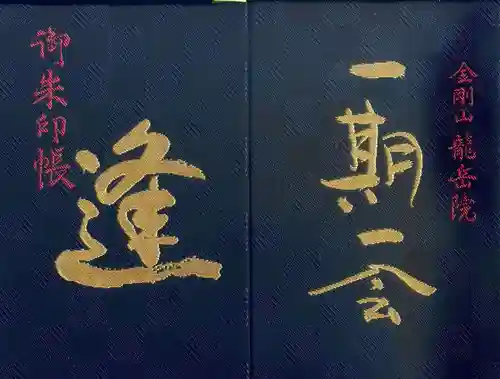 御朱印帳
逢
一期一会
金剛山 龍岳院